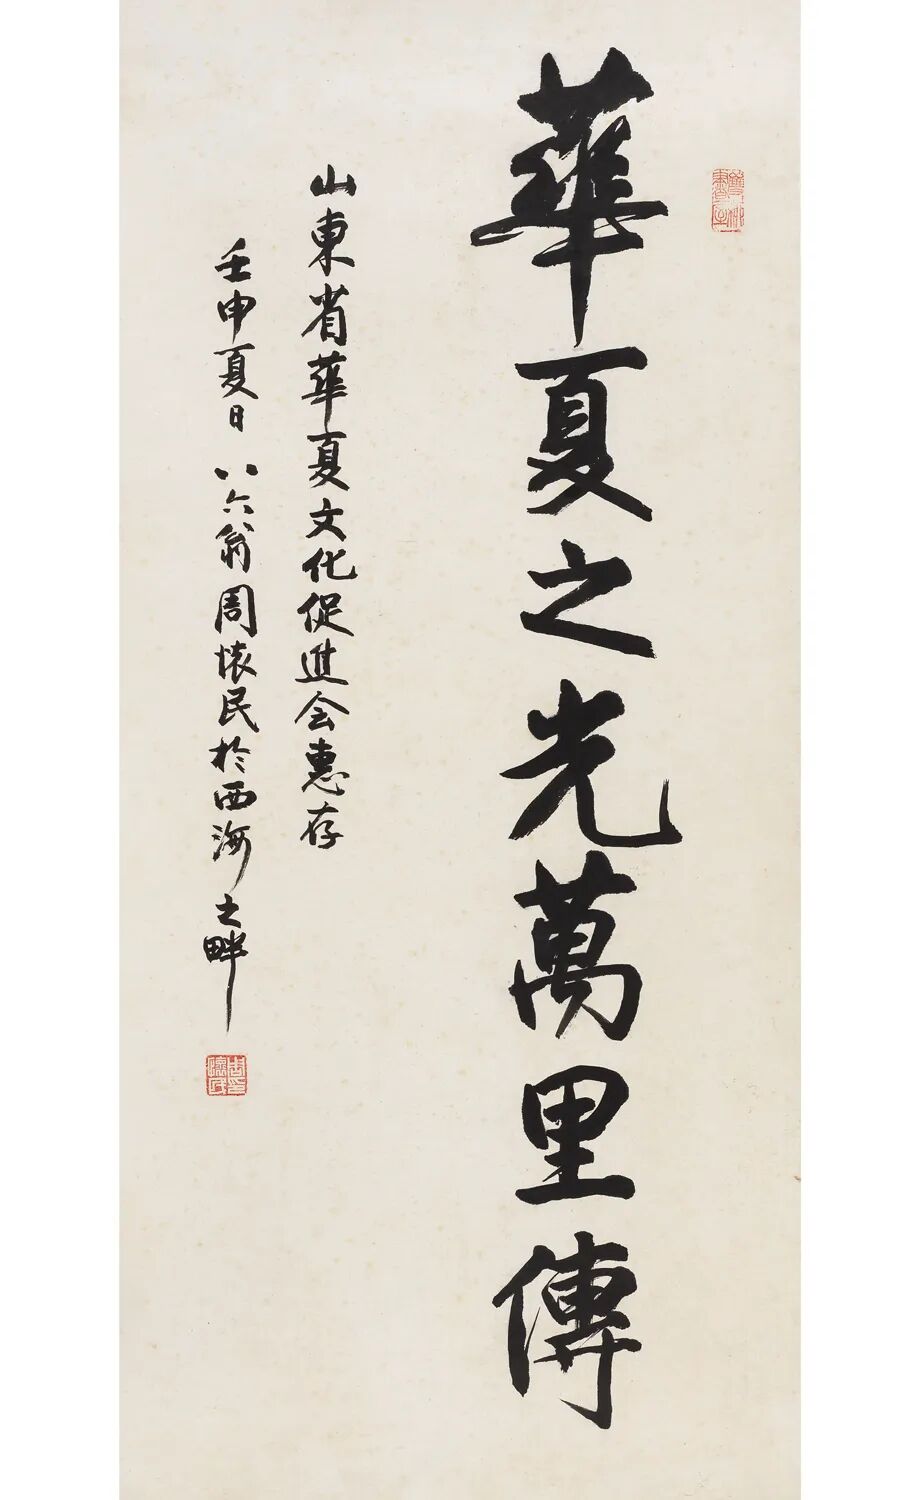 華夏之光萬里傳
山東省華夏文化促進会惠存
壬申夏日八六翁周懷民於西海之畔